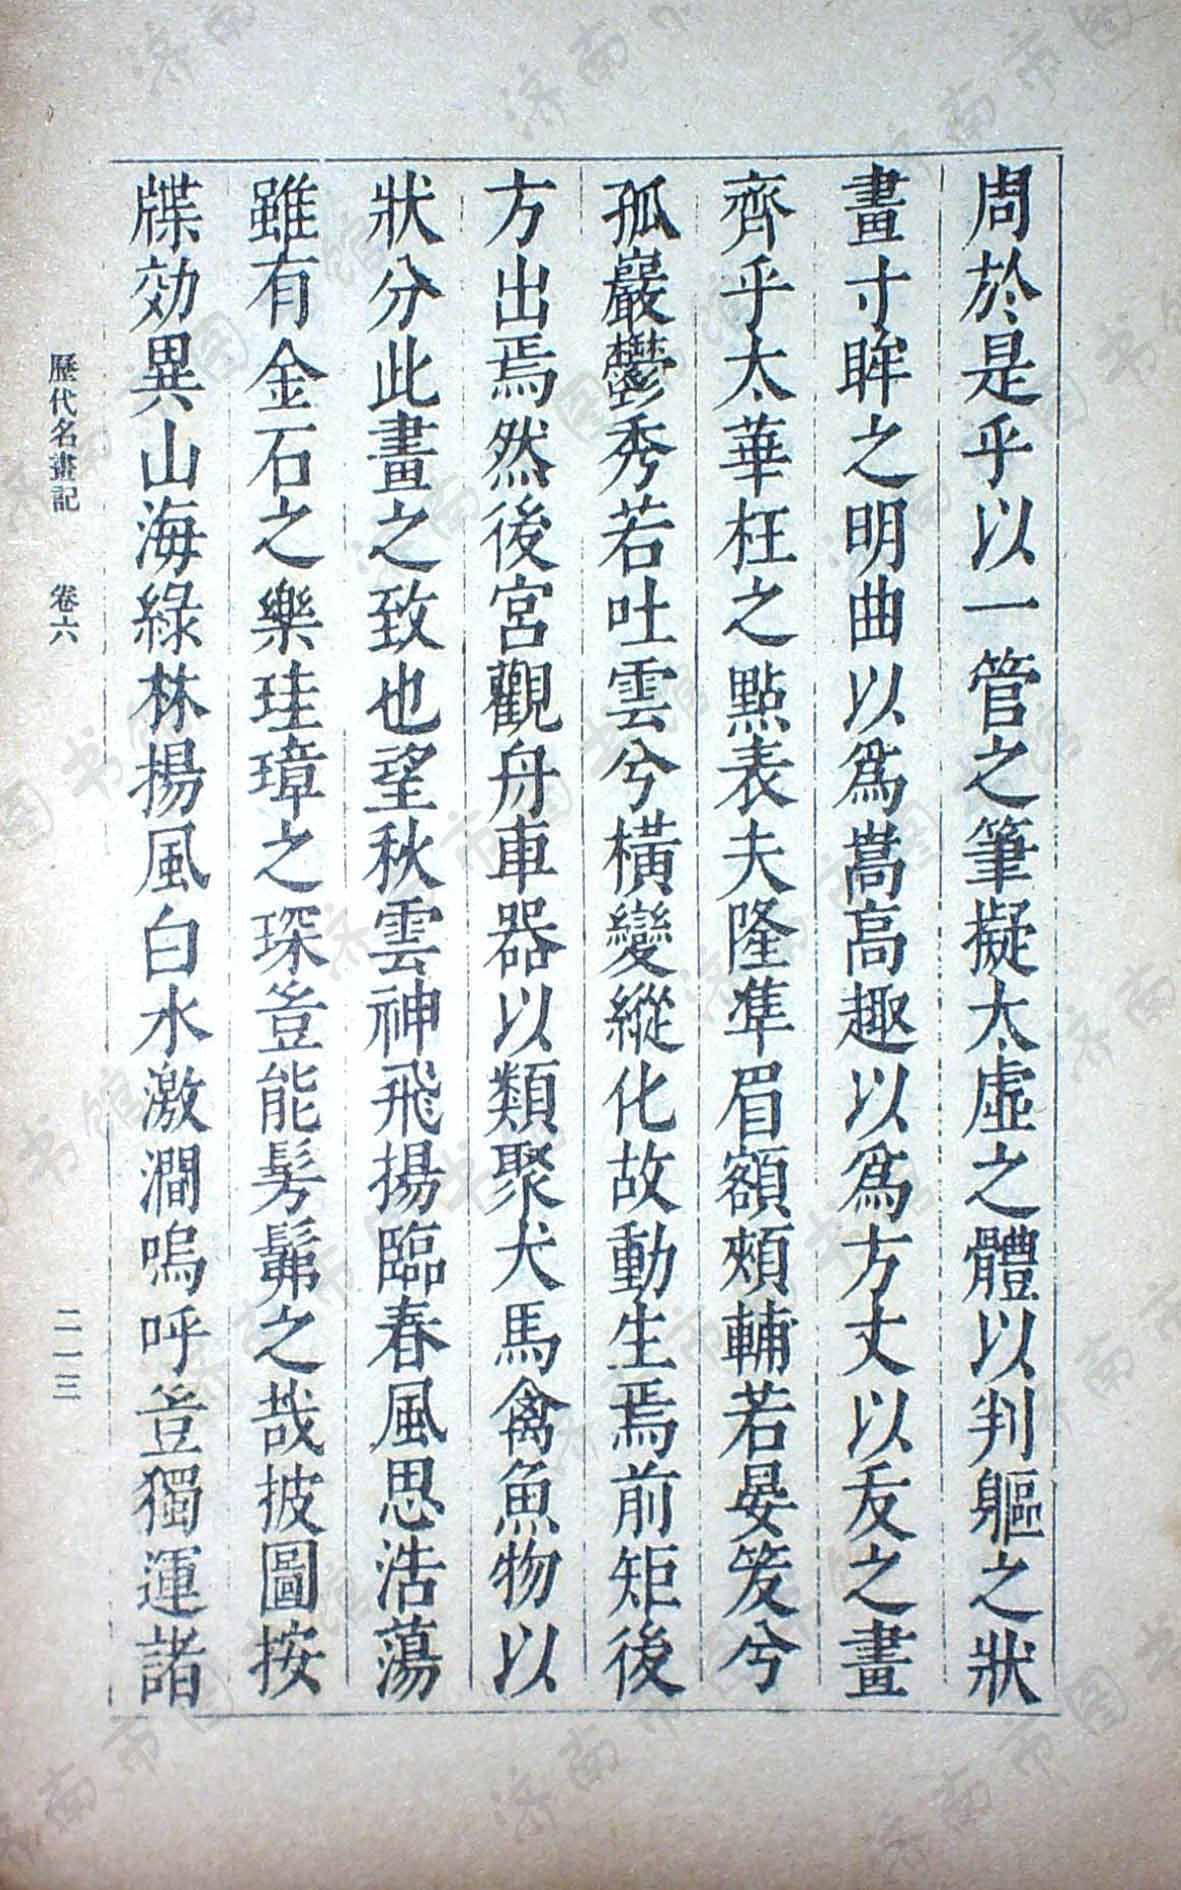 周於是乎以一管之筆擬太虛之體以判軀之狀
畫寸眸之明曲以爲嵩高趣以爲方丈以叐之畫
齊乎太華枉之點表夫隆準眉額頰輔若晏笑兮
孤巖鬱秀若吐雲兮橫變縱化故動生焉前矩後
方出焉然後宮觀舟車器以類聚犬馬禽魚物以
狀分此畫之致也望秋雲神飛揚臨春風思浩蕩
雖有金石之樂珪璋之琛豈能髣髴之哉披圖按
牒効異山海綠林揚風白水激澗嗚呼豈獨運諸
歷代名畫記 卷六 二一三
济南市图书馆